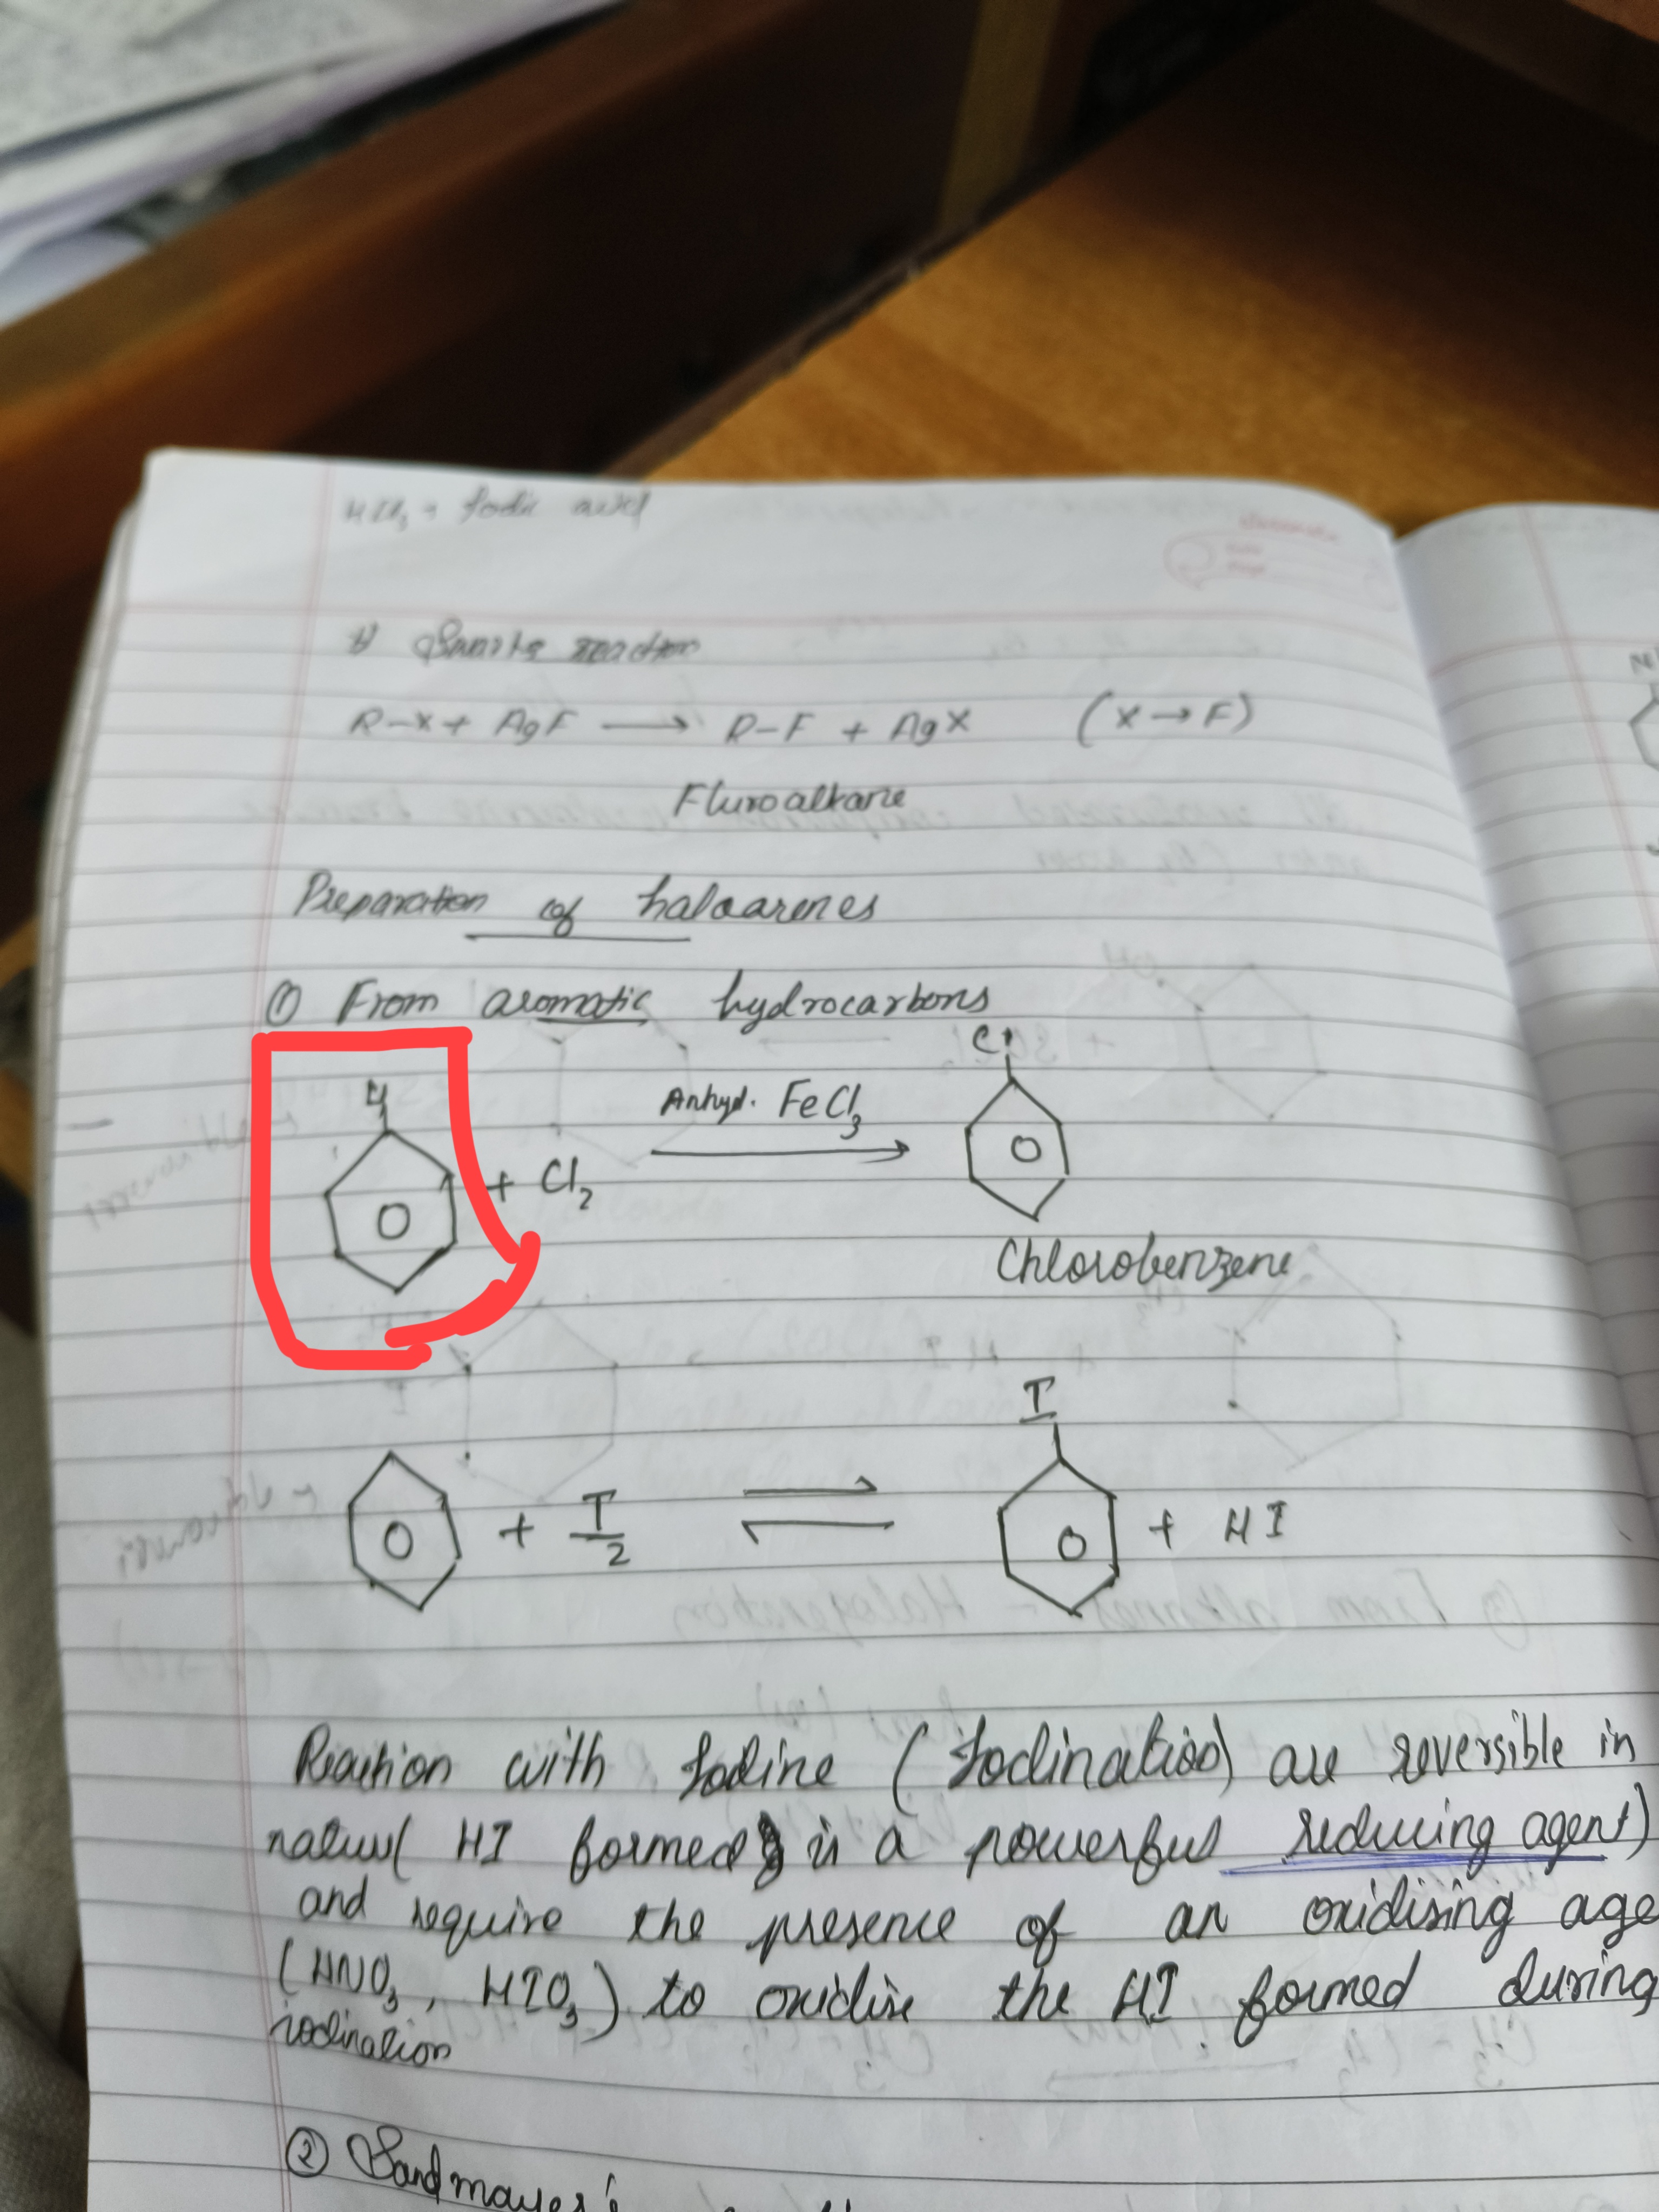 HIO₃ = Iodic acid
Swarts reaction
R-X + AgF → R-F + AgX (X → F)
Fluroalkane
Preparation of haloarenes
① From aromatic hydrocarbons
H + Cl₂ Anhyd. FeCl₃ → Cl
Chlorobenzene
+ I₂ ⇌ I + HI
Reaction with Iodine (Iodination) are reversible in
nature( HI formed is a powerful reducing agent)
and require the presence of an oxidising age
(HNO₃, HIO₃) to oxidise the HI formed during
iodination
② Sandmayer's